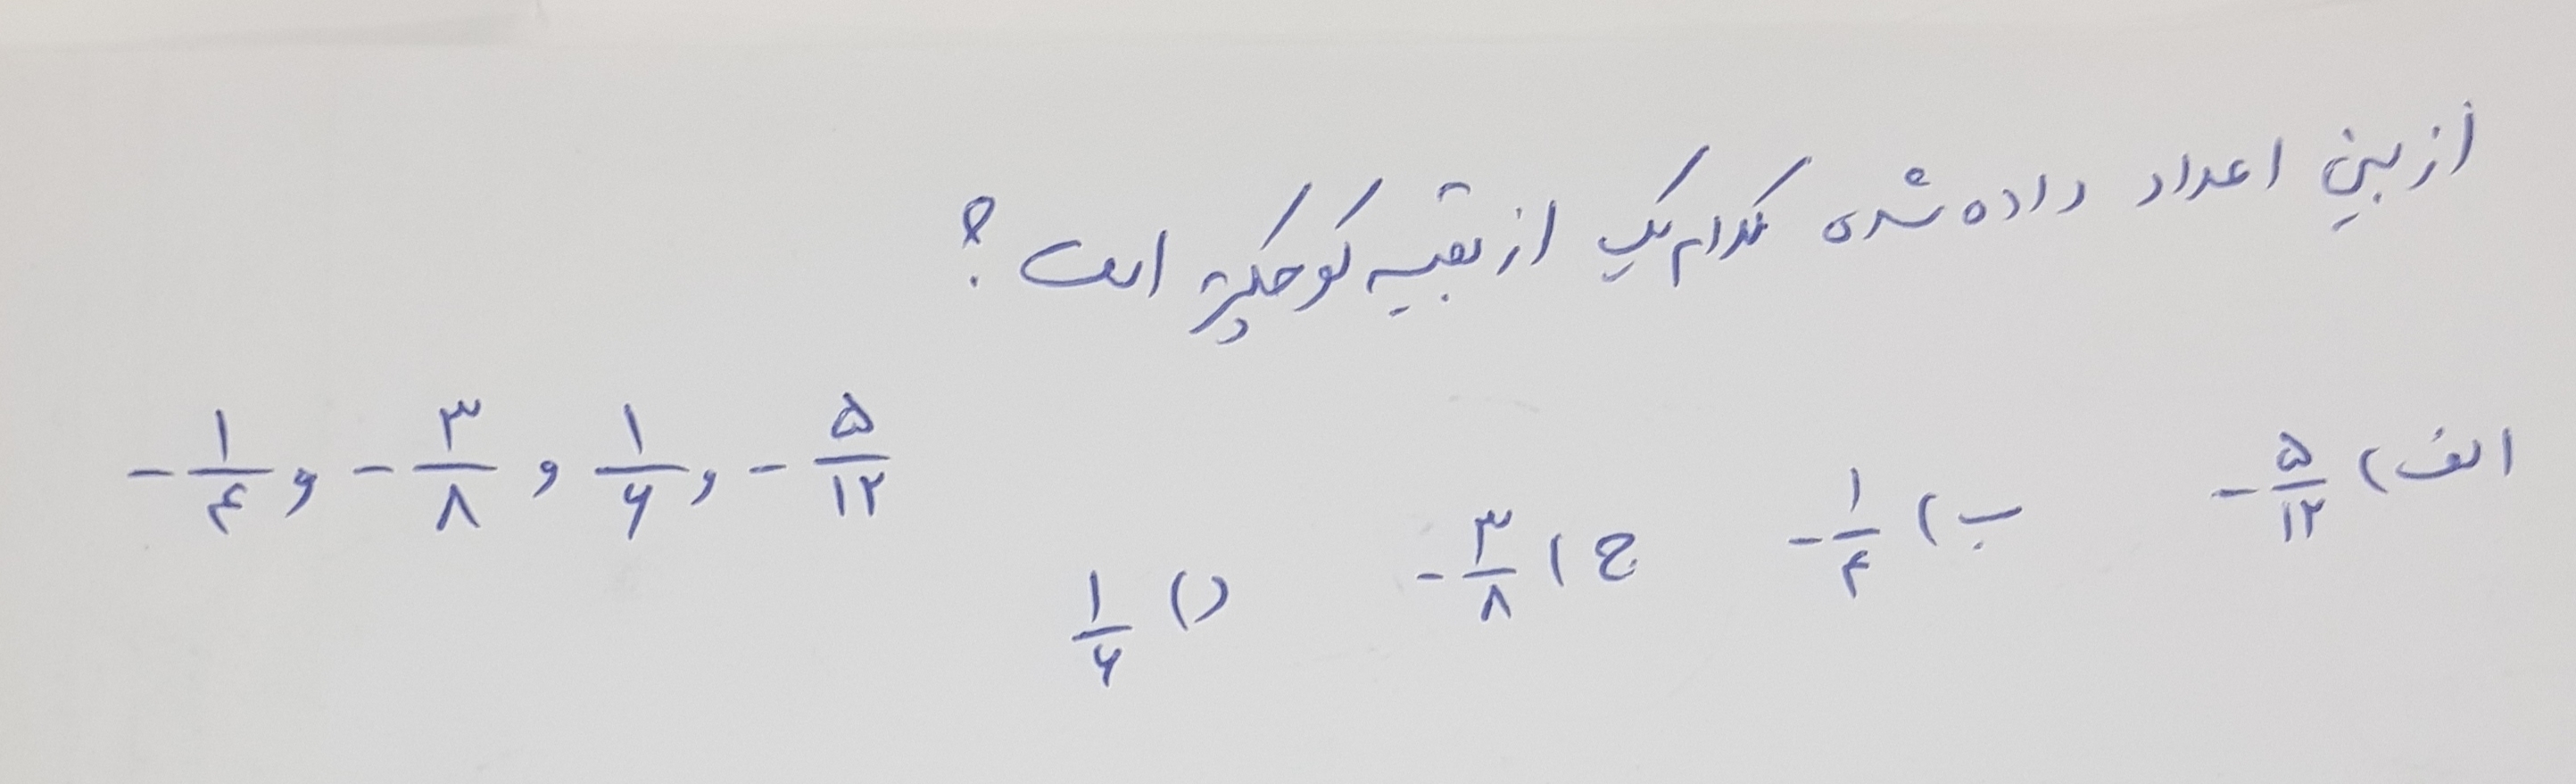 از بین اعداد داده شده کدام یک از بقیه کوچکتر است؟
-۱/۴ و -۳/۸ و ۱/۶ و -۵/۱۲
الف) -۵/۱۲ ب) -۱/۴ ج) -۳/۸ د) ۱/۶